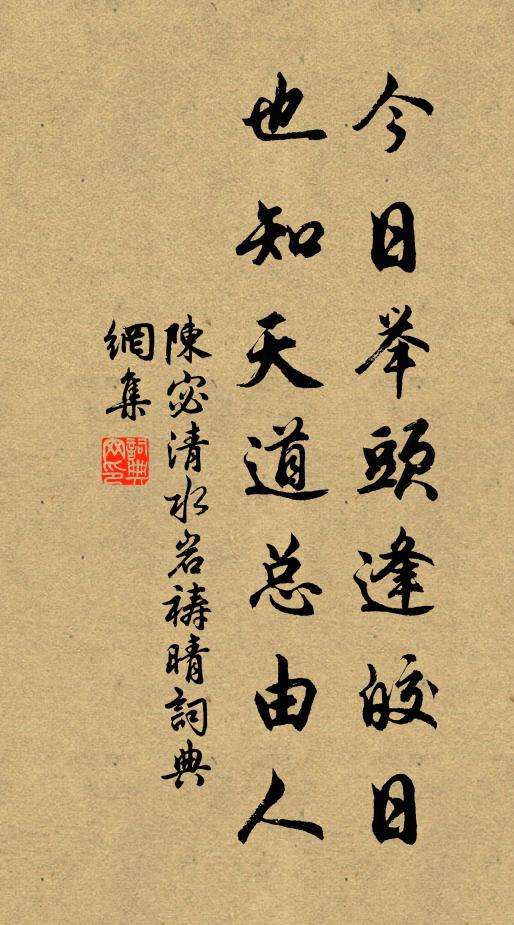 今日举頭逢皎日
也知天道总由人
陳宓清水岩禱晴詞典
網集
詞典网印